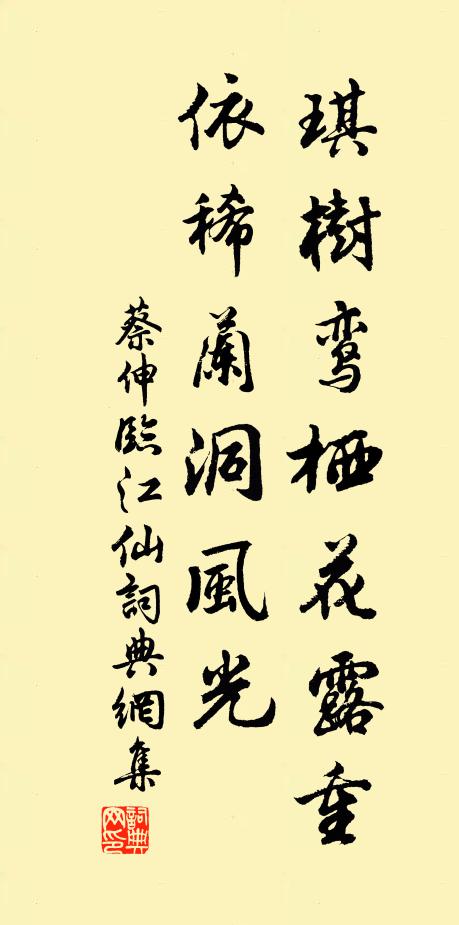 琪樹鸾栖花露重
依稀蘭洞風光
蔡伸臨江仙詞典網集
詞典網印